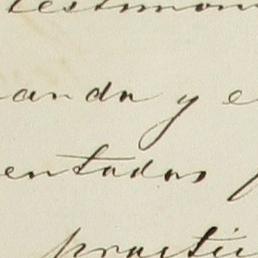 testimon
anda y e
entadas
practi